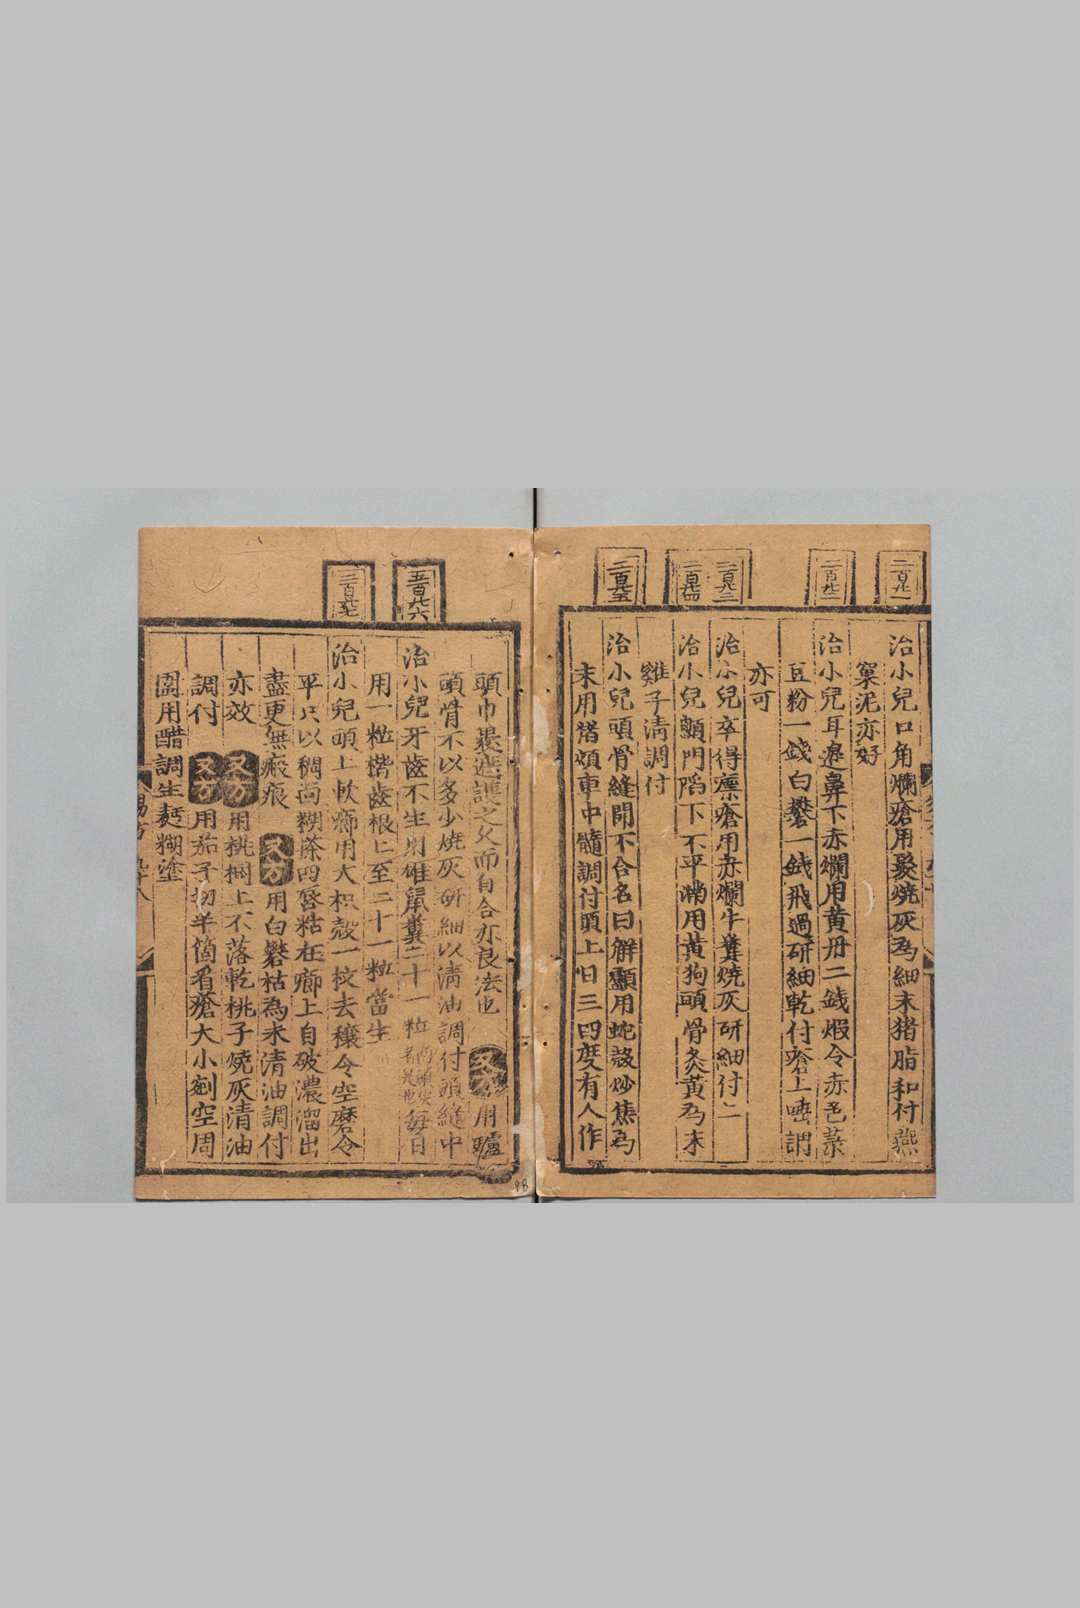 二百九一
治小兒口角爛瘡用髮燒灰為細末猪脂和付燕
窠泥亦好
二百九二
治小兒耳邊鼻下赤爛用黄丹二錢煆令赤色菉
豆粉一錢白礬一錢飛過研細乾付瘡上唾調
亦可
二百九三
治小兒卒得瘭瘡用赤爛牛糞燒灰研細付之
二百九四
治小兒顖門陷下不平滿用黃狗頭骨灸黃為末
雞子淸調付
二百九五
治小兒頭骨縫開不合名曰解顱用蛇殼炒焦為
末用猪頰車中髓調付頭上日三四度有人作
頭巾遮護之久而自合亦良法也 又方 用驢
頭骨不以多少燒灰研細以淸油調付頭縫中
治小兒牙齒不生用雄鼠糞二十一粒 兩頭尖者是也 每日
用一粒揩齒根上至二十一粒當生
治小兒頭上軟癤用大枳殼一枚去穰令空磨令
平只以稠麵糊搽四唇粘在癤上自破濃溜出
盡更無瘢痕 又方 用白礬枯為末清油調付
亦效 又方 用桃樹上不落乾桃子燒灰清油
調付 又方 用茄子切半箇看瘡大小剜空周
圍用醋調生麪糊塗